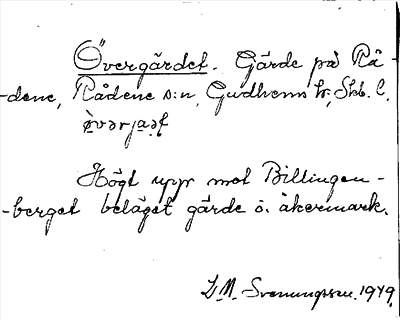 Övergärdet. Gärde på Rå-
-dene, Rådene s:n, Gudhems hr, Skb. l.
Högt upp mot Billingen-
-berget beläget gärde o. åkermark.
D.M. Svenungsson. 1949.